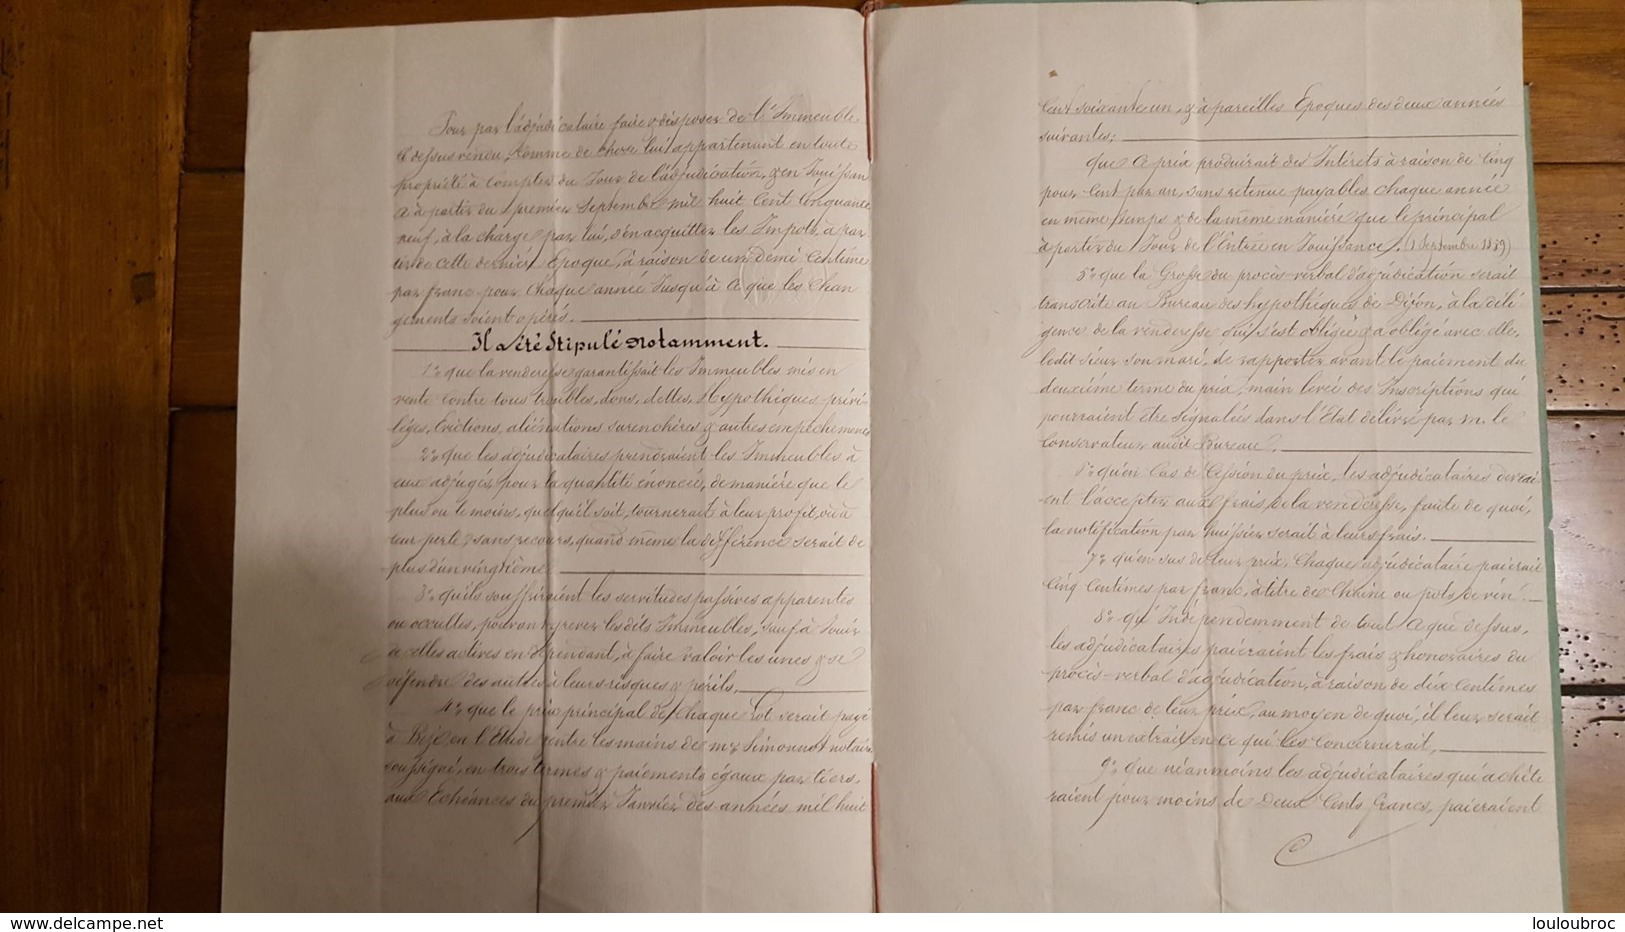 Pour par l'adjudicataire faire & disposer de l'Immeuble
ci dessus vendu, comme de chose lui appartenant en toute
propriété à compter du Jour de l'adjudication, & en Jouissan
ce à partir du premier Septembre mil huit Cent Cinquante
neuf, à la charge par lui, d'en acquitter les Impots, à par
tir de cette dernière Epoque, à raison de un demi Centime
par franc pour Chaque année Jusqu'à ce que les Chan
gements soient opérés.
Il a été Stipulé notamment.
1°. que la venderesse garantissait les Immeubles mis en
vente contre tous troubles, dons, dettes, Hypothèques, privi-
léges, Evictions, aliénations surenchères & autres empêchements
2°. que les adjudicataires prendraient les Immeubles à
eux adjugés, pour la quantité énoncée, de manière que le
plus ou le moins, quel qu'il soit, tournerait à leur profit, ou à
leur perte, sans recours, quand même la différence serait de
plus d'un vingtième.
3°. qu'ils souffriraient les servitudes passives apparentes
ou occultes, pouvant grever les dits Immeubles, sauf à Jouir
de celles actives en dépendant, à faire valoir les unes & se
défendre des autres à leurs risques & périls.
4°. que le prix principal de Chaque Lot serait payé
à Bèze en l'Etude & entre les mains de me Simonnot notaire
soussigné, en trois termes & paiements égaux par tiers,
aux Echéances du premier Janvier des années mil huit
Cent soixante un, & à pareilles Epoques des deux années
suivantes;
que ce prix produirait des Intérêts à raison de Cinq
pour Cent par an, sans retenue payables chaque année
en même temps & de la même manière que le principal
à partir du Jour de l'Entrée en Jouissance. (1er Septembre 1859)
5°. que la Grosse du procès-verbal d'adjudication serait
transcrite au Bureau des hypothèques de Dijon, à la dili
gence de la venderesse qui s'est obligée & a obligé avec elle,
ledit sieur son mari, de rapporter avant le paiement du
deuxième terme du prix, main levée des Inscriptions qui
pourraient être signalées dans l'Etat délivré par m. le
Conservateur audit Bureau.
6°. qu'en Cas de Cession du prix, les adjudicataires devrai
ent l'accepter aux frais de la venderesse, faute de quoi,
la notification par huissier serait à leurs frais.
7°. qu'en sus de leur prix, Chaque adjudicataire paierait
Cinq Centimes par franc, à titre de Chaine ou pots de vin.
8°. qu'Indépendemment de tout ce que dessus,
les adjudicataires paieraient les frais & honoraires du
procès-verbal d'adjudication, à raison de dix Centimes
par franc de leur prix, au moyen de quoi, il leur serait
remis un extrait en ce qui les concernerait,
9°. que néanmoins les adjudicataires qui achète
raient pour moins de Deux Cents francs, paieraient
www.delcampe.net
louloubroc